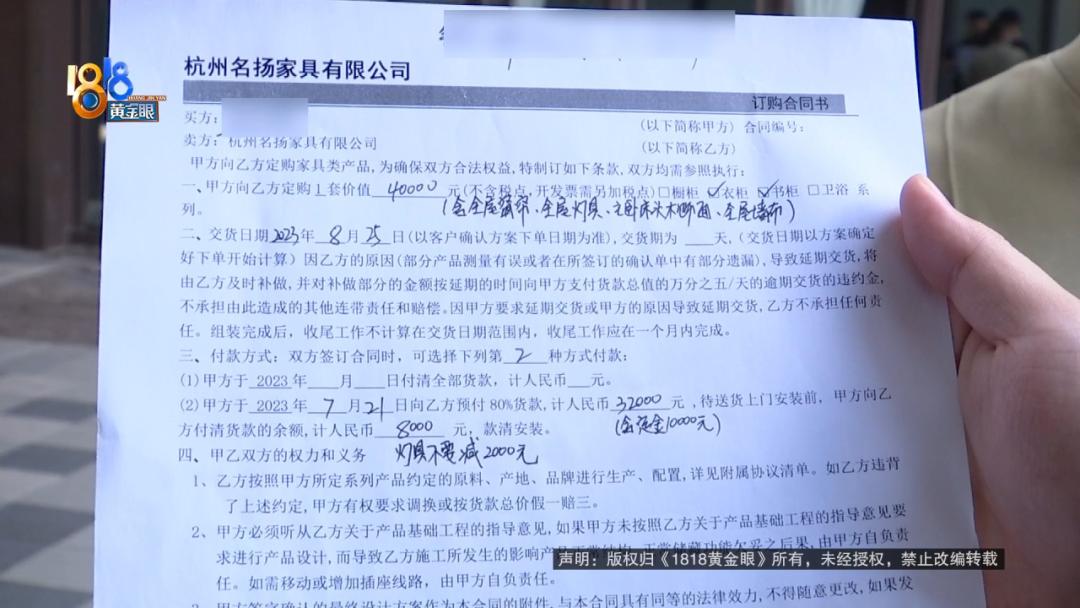 1818
黄金眼
杭州名扬家具有限公司
订购合同书
买方: (以下简称甲方) 合同编号:
卖方: 杭州名扬家具有限公司 (以下简称乙方)
甲方向乙方定购家具类产品,为确保双方合法权益,特制订如下条款,双方均需参照执行:
一、甲方向乙方定购1套价值 40000 元(不含税点,开发票需另加税点)□橱柜 ☑衣柜 ☑书柜 □卫浴 系
列。 (含全屋窗帘、全屋灯具、全屋墙布)
二、交货日期2023年8月25日(以客户确认方案下单日期为准),交货期为 ___天,(交货日期以方案确定
好下单开始计算)因乙方的原因(部分产品测量有误或者在所签订的确认单中有部分遗漏),导致延期交货,将
由乙方及时补做,并对补做部分的金额按延期的时间向甲方支付货款总值的万分之五/天的逾期交货的违约金,
不承担由此造成的其他连带责任和赔偿。因甲方要求延期交货或甲方的原因导致延期交货,乙方不承担任何责
任。组装完成后,收尾工作不计算在交货日期范围内,收尾工作应在一个月内完成。
三、付款方式:双方签订合同时,可选择下列第 2 种方式付款:
(1)甲方于 2023 年____月____日付清全部货款,计人民币___元。
(2)甲方于 2023 年 7 月 21 日向乙方预付80%货款,计人民币 32000 元,待送货上门安装前,甲方向乙
方付清货款的余额,计人民币 8000 元,款清安装。 (含定金10000元)
四、甲乙双方的权力和义务 灯具不要减2000元
1、乙方按照甲方所定系列产品约定的原料、产地、品牌进行生产、配置,详见附属协议清单。如乙方违背
了上述约定,甲方有权要求调换或按货款总价假一赔三。
2、甲方必须听从乙方关于产品基础工程的指导意见,如果甲方未按照乙方关于产品基础工程的指导意见要
求进行产品设计,而导致乙方施工所发生的影响产品正常结构、正常储藏功能欠妥之后果,由甲方自负责
任。如需移动或增加插座线路,由甲方自负责任。
甲方签字确认的最终设计方案作为本合同的附件,与本合同具有同等的法律效力,不得随意更改,如果发
声明:版权归《1818黄金眼》所有,未经授权,禁止改编转载